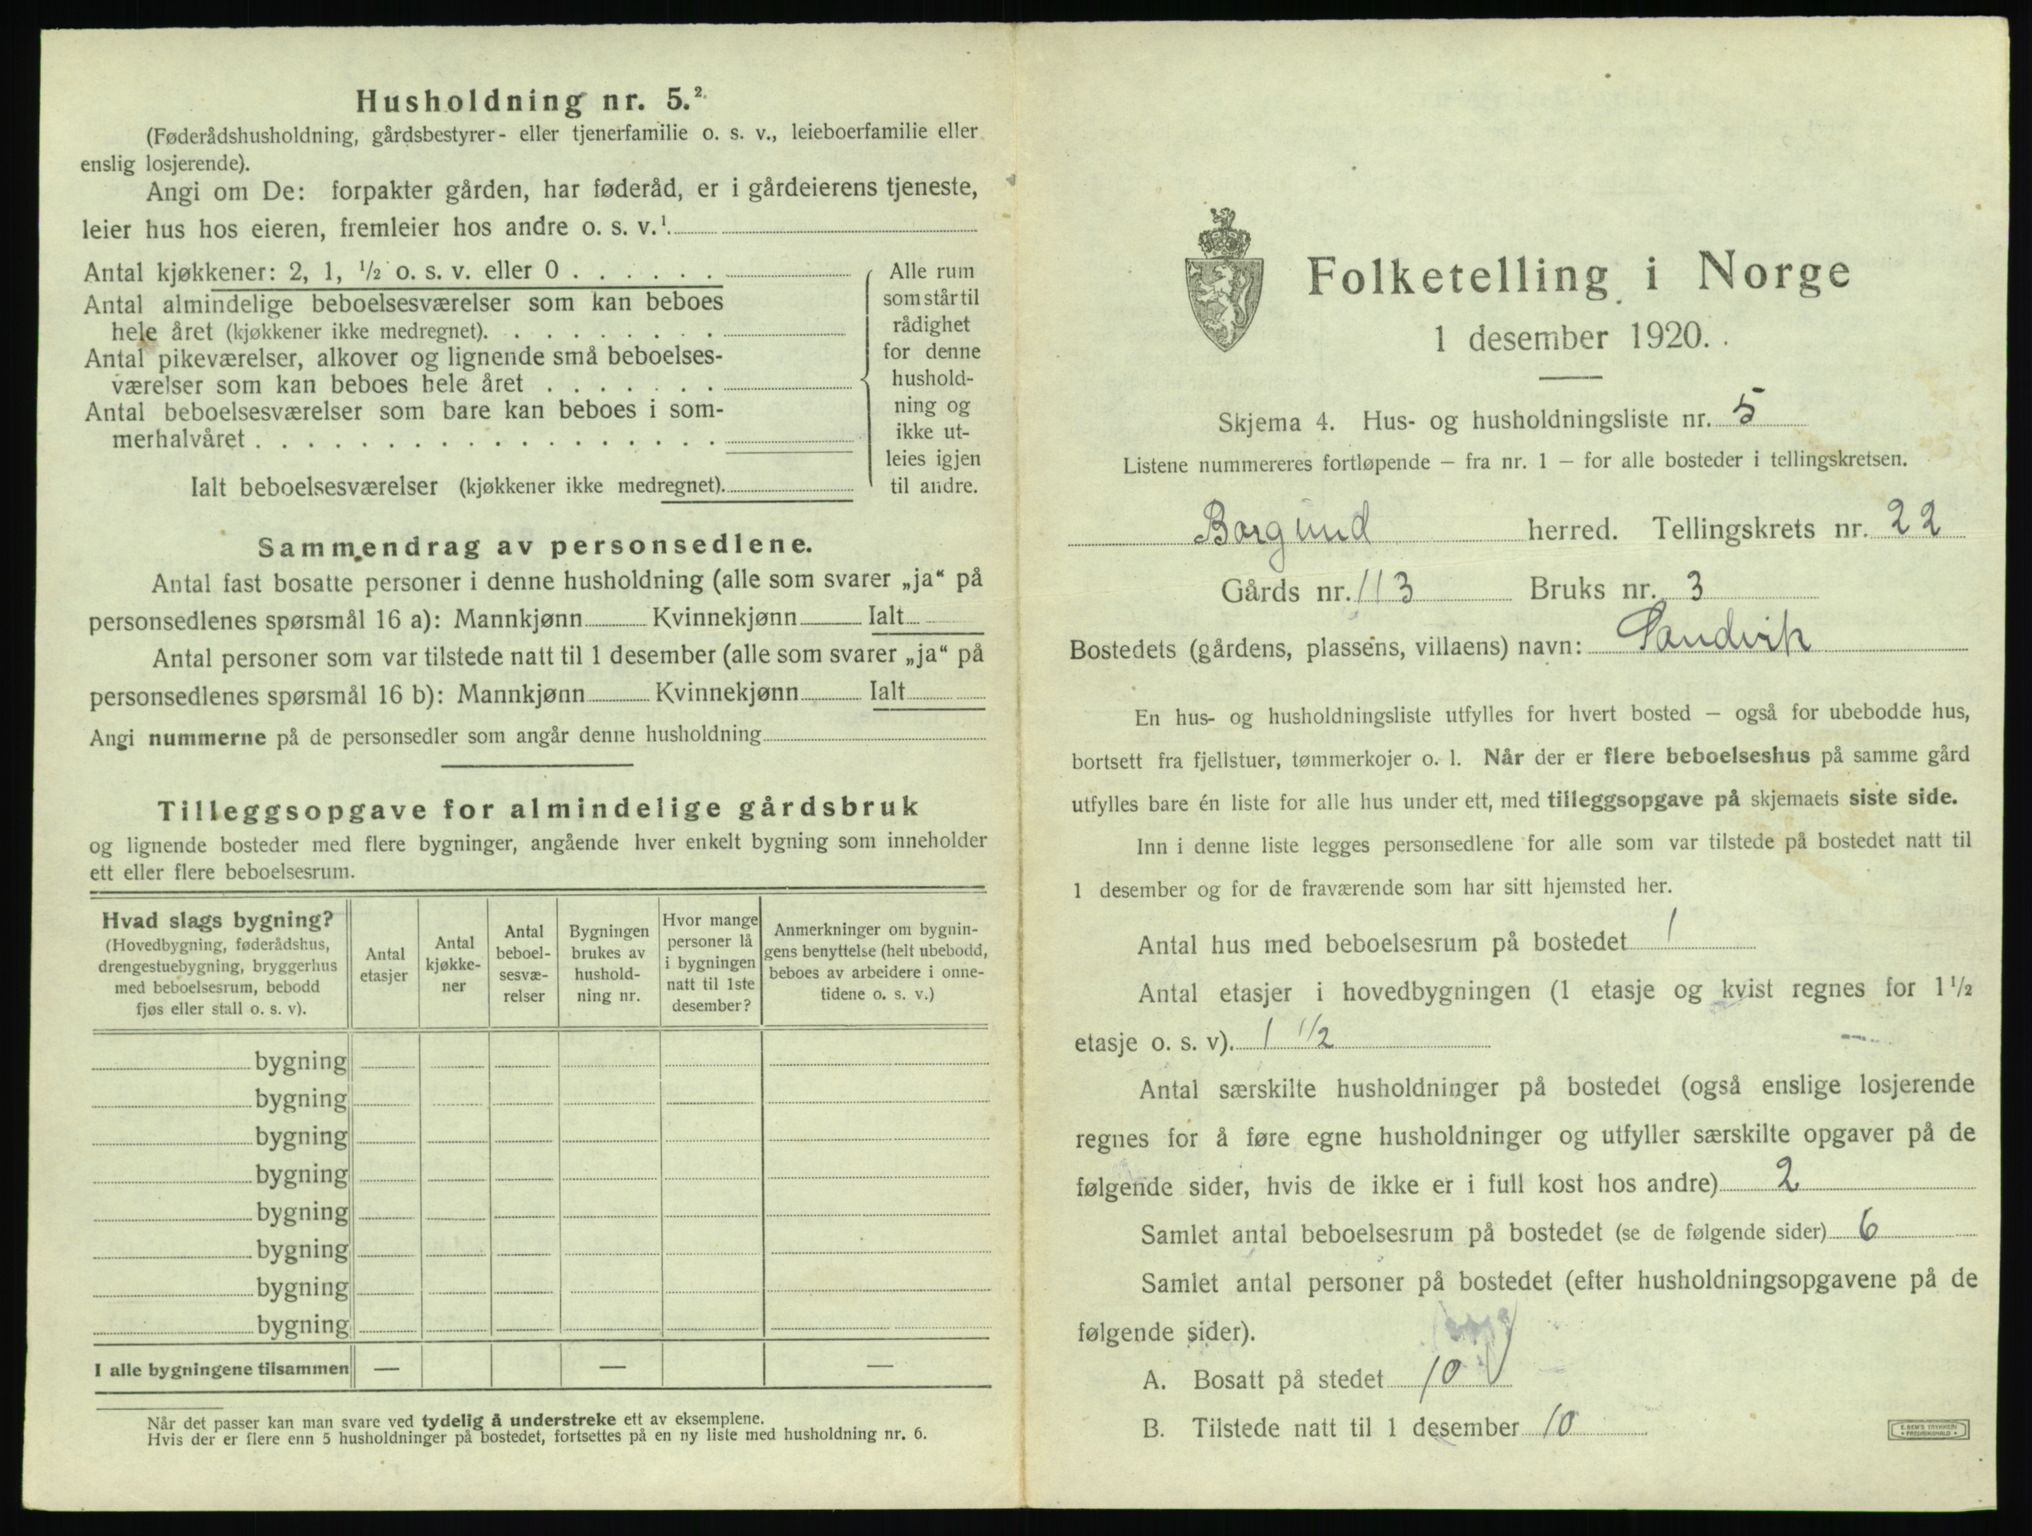 Husholdning nr. 5.²
(Føderådshusholdning, gårdsbestyrer- eller tjenerfamilie o. s. v., leieboerfamilie eller
enslig losjerende).
Angi om De: forpakter gården, har føderåd, er i gårdeierens tjeneste,
leier hus hos eieren, fremleier hos andre o. s. v.¹
Antal kjøkkener: 2, 1, ½ o. s. v. eller 0 . . . . . .
Antal almindelige beboelsesværelser som kan beboes
hele året (kjøkkener ikke medregnet). . . . . . . . .
Antal pikeværelser, alkover og lignende små beboelses-
værelser som kan beboes hele året . . . . . . .
Antal beboelsesværelser som bare kan beboes i som-
merhalvåret . . . . . . . . . . . . . . . . . .
Ialt beboelsesværelser (kjøkkener ikke medregnet).
Alle rum
som står til
rådighet
for denne
hushold-
ning og
ikke ut-
leies igjen
til andre.
Sammendrag av personsedlene.
Antal fast bosatte personer i denne husholdning (alle som svarer „ja“ på
personsedlenes spørsmål 16 a): Mannkjønn Kvinnekjønn Ialt
Antal personer som var tilstede natt til 1 desember (alle som svarer „ja“ på
personsedlenes spørsmål 16 b): Mannkjønn Kvinnekjønn Ialt
Angi nummerne på de personsedler som angår denne husholdning
Tilleggsopgave for almindelige gårdsbruk
og lignende bosteder med flere bygninger, angående hver enkelt bygning som inneholder
ett eller flere beboelsesrum.
Hvad slags bygning?
(Hovedbygning, føderådshus,
drengestuebygning, bryggerhus
med beboelsesrum, bebodd
fjøs eller stall o. s. v).
Antal
etasjer
Antal
kjøkke-
ner
Antal
beboel-
sesvæ-
relser
Bygningen
brukes av
hushold-
ning nr.
Hvor mange
personer lå
i bygningen
natt til 1ste
desember?
Anmerkninger om bygnin-
gens benyttelse (helt ubebodd,
beboes av arbeidere i onne-
tidene o. s. v.)
bygning
bygning
bygning
bygning
bygning
bygning
bygning
bygning
I alle bygningene tilsammen — — —
Når det passer kan man svare ved tydelig å understreke ett av eksemplene.
Hvis der er flere enn 5 husholdninger på bostedet, fortsettes på en ny liste med husholdning nr. 6.
Folketelling i Norge
1 desember 1920.
Skjema 4. Hus- og husholdningsliste nr. 5
Listene nummereres fortløpende – fra nr. 1 – for alle bosteder i tellingskretsen.
Borgund herred. Tellingskrets nr. 22
Gårds nr. 113 Bruks nr. 3
Bostedets (gårdens, plassens, villaens) navn: Sandvik
En hus- og husholdningsliste utfylles for hvert bosted – også for ubebodde hus,
bortsett fra fjellstuer, tømmerkojer o. l. Når der er flere beboelseshus på samme gård
utfylles bare én liste for alle hus under ett, med tilleggsopgave på skjemaets siste side.
Inn i denne liste legges personsedlene for alle som var tilstede på bostedet natt til
1 desember og for de fraværende som har sitt hjemsted her.
Antal hus med beboelsesrum på bostedet 1
Antal etasjer i hovedbygningen (1 etasje og kvist regnes for 1½
etasje o. s. v). 1 1/2
Antal særskilte husholdninger på bostedet (også enslige losjerende
regnes for å føre egne husholdninger og utfyller særskilte opgaver på de
følgende sider, hvis de ikke er i full kost hos andre) 2
Samlet antal beboelsesrum på bostedet (se de følgende sider) 6
Samlet antal personer på bostedet (efter husholdningsopgavene på de
følgende sider).
A. Bosatt på stedet 10
B. Tilstede natt til 1 desember 10